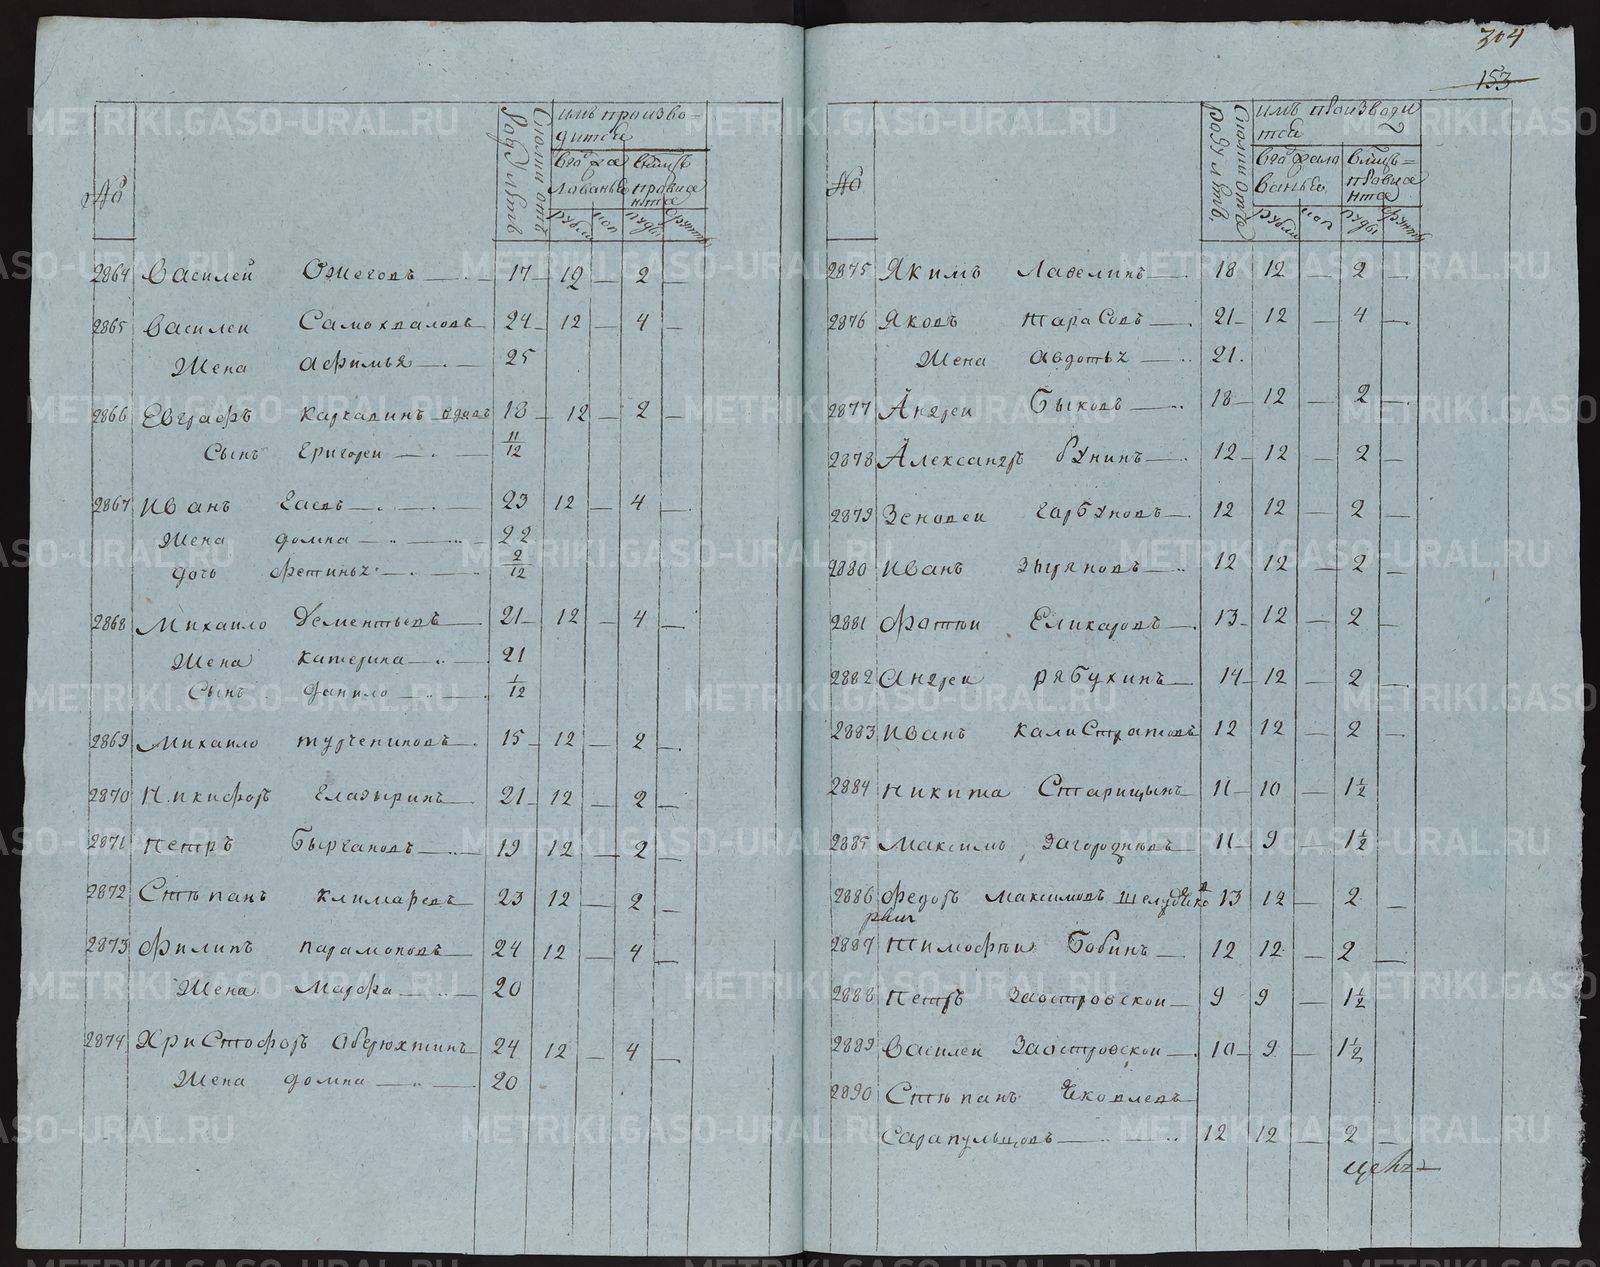 304
153
№
Столки отъ
роду лѣтъ
имъ произво-
дитсѧ
вгод жа
лованьѧ
вмцъ
провиа
нта
рубли
коп
пуды
фунты
2864 Василеи Ожеговъ 17 12 — 2 —
2865 Василеи Самохваловъ 24 12 — 4 —
Жена афимья 25
2866 Евграфъ каркадинъ вдовъ 18 12 — 2 —
Сынъ Григореи 11/12
2867 Иванъ Гаевъ 23 12 — 4 —
Жена домна 22
дочь фетинья 2/12
2868 Михаило Дементьевъ 21 12 — 4 —
Жена катерина 21
Сынъ данило 1/12
2869 Михаило турчениновъ 15 12 — 2 —
2870 Никифоръ Глазыринъ 21 12 — 2 —
2871 Петръ Бырчановъ 19 12 — 2 —
2872 Степанъ климаревъ 23 12 — 2 —
2873 Филипъ парамоновъ 24 12 — 4 —
Жена Марфа 20
2874 Христофоръ Оберюхтинъ 24 12 — 4 —
Жена домна 20
№
роду лѣтъ
имъ производи
тсѧ
вгод жало
ваньѧ
вмцъ
провиа
нта
рубли
коп
пуды
фунты
2875 Якимъ Лавелинъ 18 12 — 2 —
2876 Яковъ тарасовъ 21 12 — 4 —
Жена авдотья 21
2877 Андреи Быковъ 18 12 — 2 —
2878 Александръ бунинъ 12 12 — 2 —
2879 Зеновеи горбуновъ 12 12 — 2 —
2880 Иванъ зыряновъ 12 12 — 2 —
2881 Фотѣи Еликаровъ 13 12 — 2 —
2882 Андреи рябухинъ 14 12 — 2 —
2883 Иванъ калистратовъ 12 12 — 2 —
2884 Никита Старицынъ 11 10 — 1½
2885 Максимъ Загороднювъ 11 9 — 1½
2886 Федоръ максимовъ 13 12 — 2 —
2887 Тимофѣи Бобинъ 12 12 — 2 —
2888 Петръ Заостровскои 9 9 — 1½
2889 Василеи Заостровскои 10 9 — 1½
2890 Степанъ Яковлевъ
Сарапульцовъ 12 12 — 2 —
METRIKI.GASO-URAL.RU